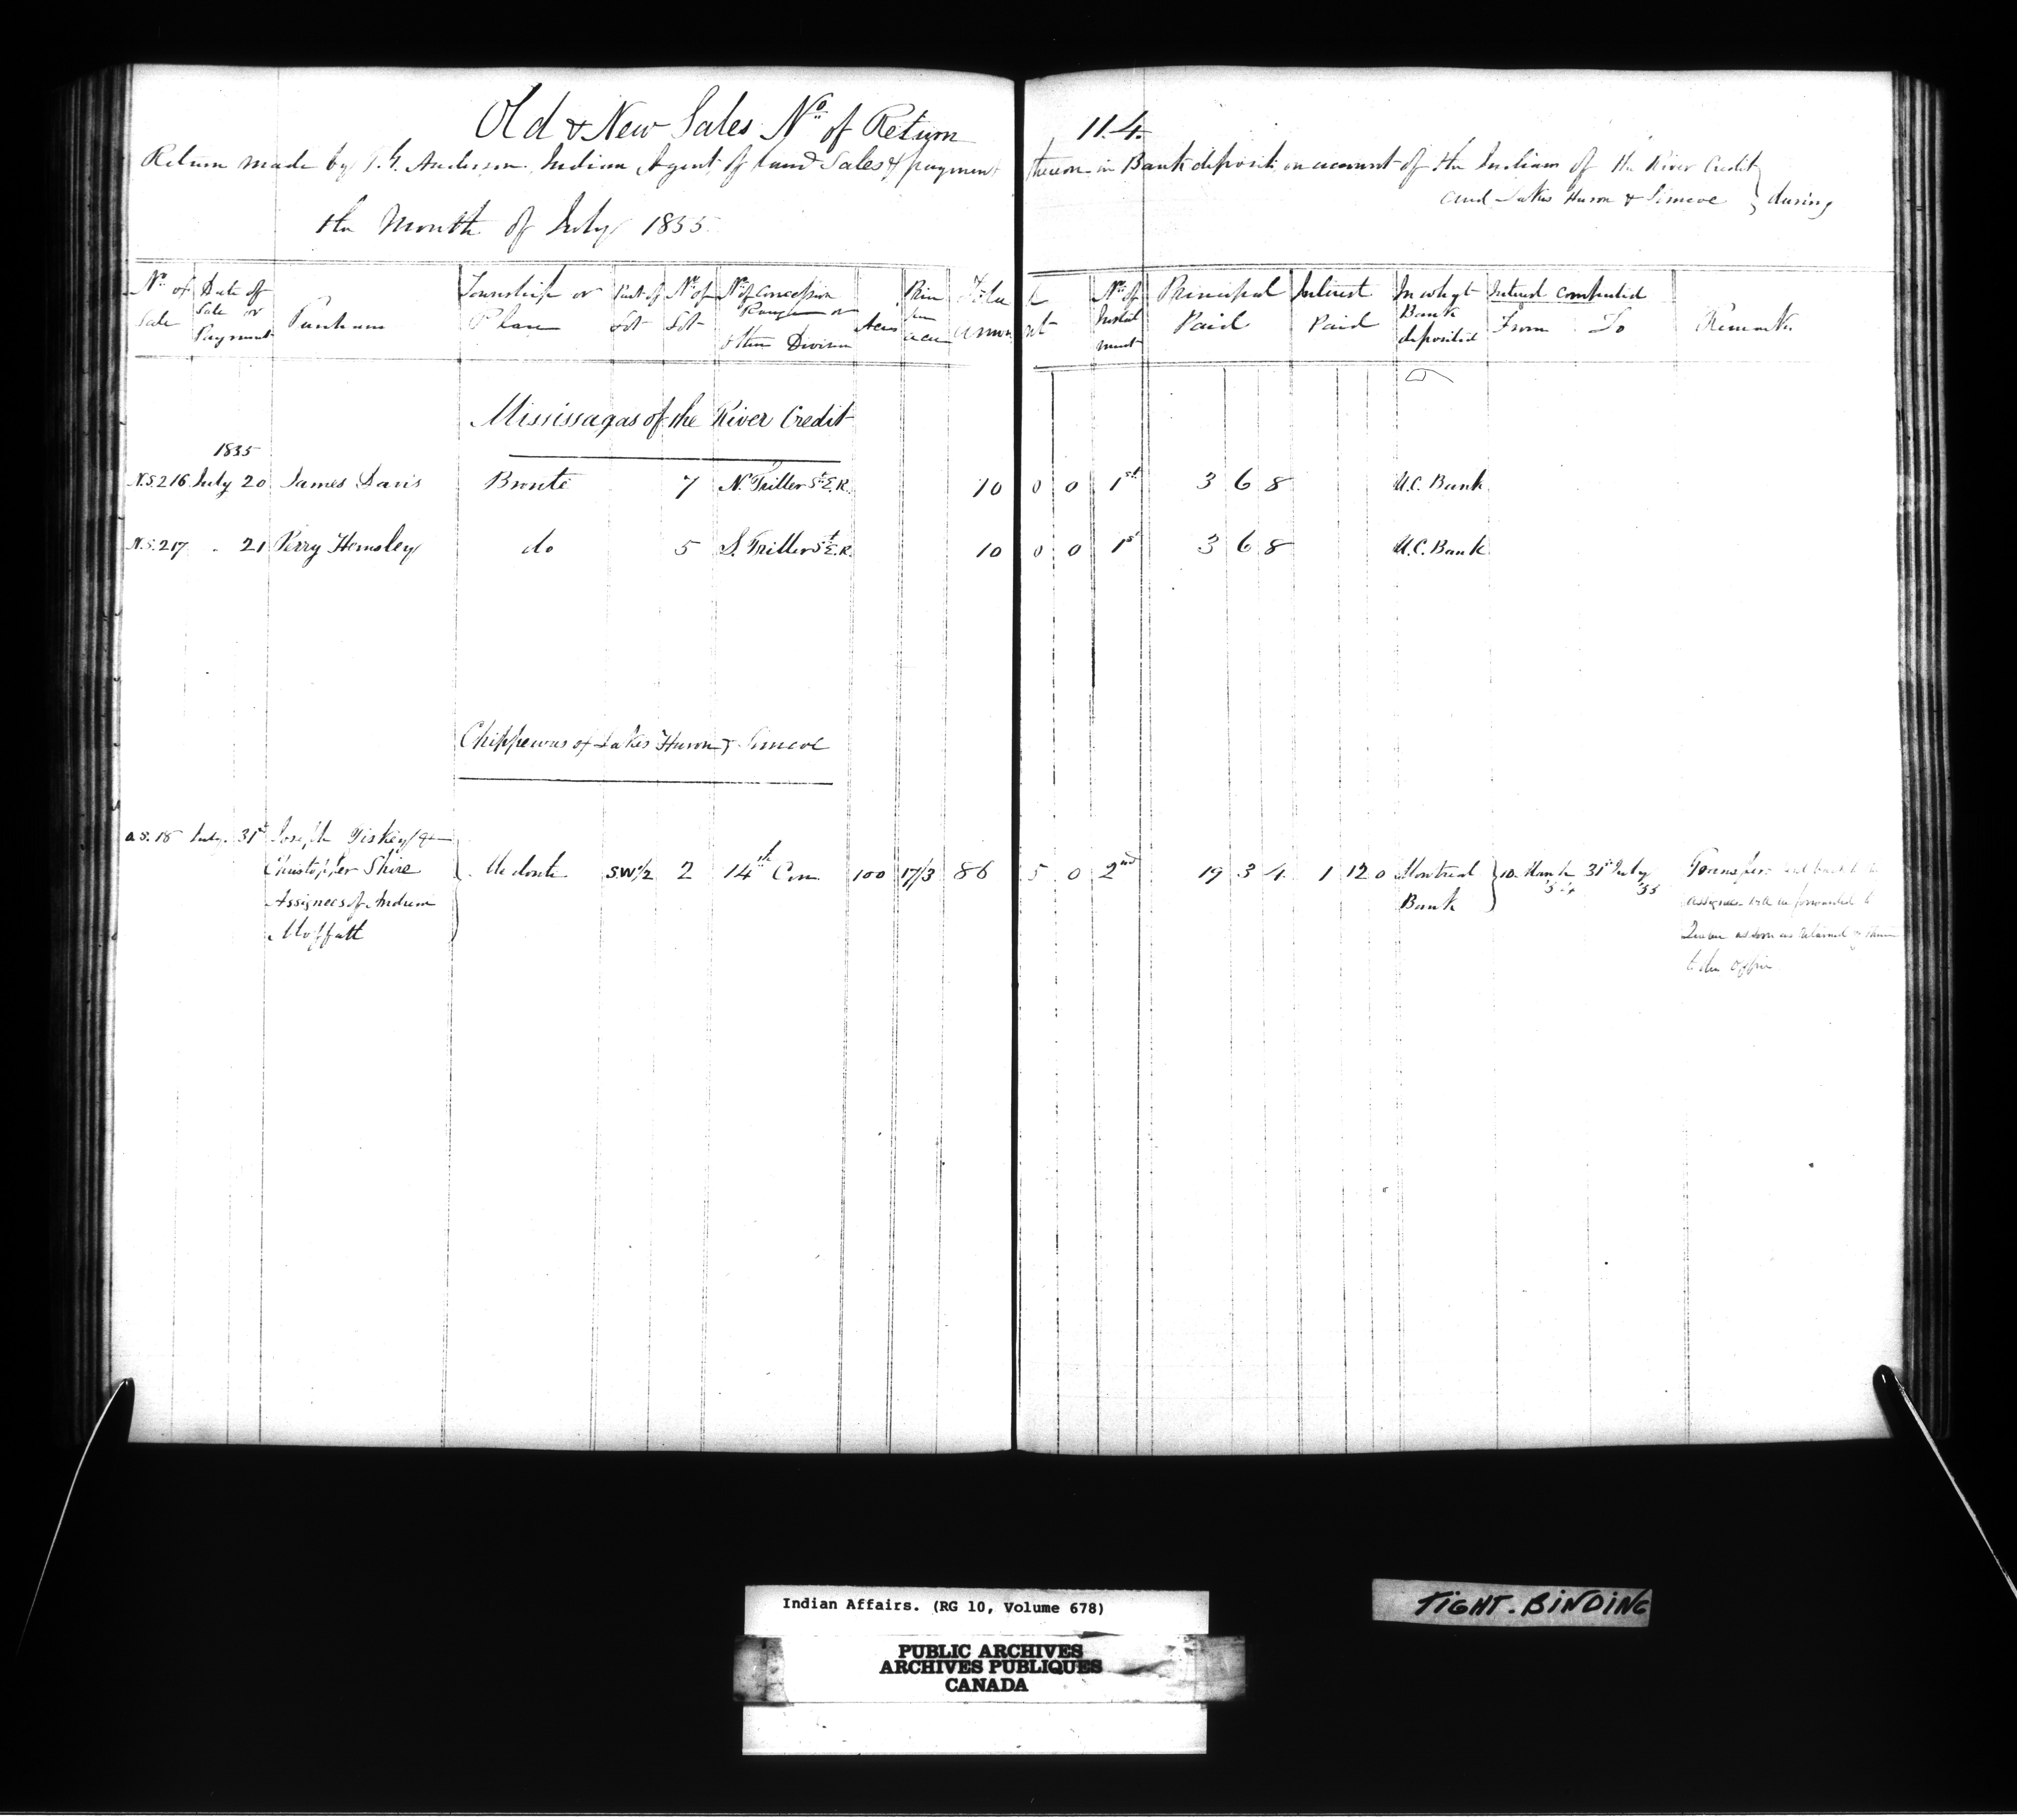 Old & New Sales No. of Return 114
Return made by T. G. Anderson Indian Agent of Land Sales & payment thereon in Bank deposit on account of the Indians of the River Credit
and Lakes Huron & Simcoe } during
the Month of July 1855
No. of Sale | Date of Sale or Payment | Purchaser | Township or Place | Part of Lot | No. of Lot | No. of Concession Range or other Division | Acres | Price per acre | Total Amount | No. of Instalment | Principal Paid | Interest Paid | In what Bank deposited | Interest computed From To | Remarks
Mississagas of the River Credit
1855
N.S. 216 July 20 James Davis Bronte 7 N. Triller St. E.R. 10 0 0 1st 3 6 8 U.C. Bank
N.S. 217 " 21 Perry Hemsley do 5 S. Triller St. E.R. 10 0 0 1st 3 6 8 U.C. Bank
Chippewas of Lakes Huron & Simcoe
O.S. 18 July 31st Joseph Tiskey &
Christopher Shire } Medonte SW 1/2 2 14th Con. 100 17/3 86 5 0 2nd 19 3 4 1 12 0 Montreal } 10 March '54 31st July '55 Transfer
Assignees of Andrew Bank assignees will be forwarded to
Moffatt as soon as returned
to this office
Indian Affairs. (RG 10, Volume 678)
TIGHT. BINDING
PUBLIC ARCHIVES
ARCHIVES PUBLIQUES
CANADA